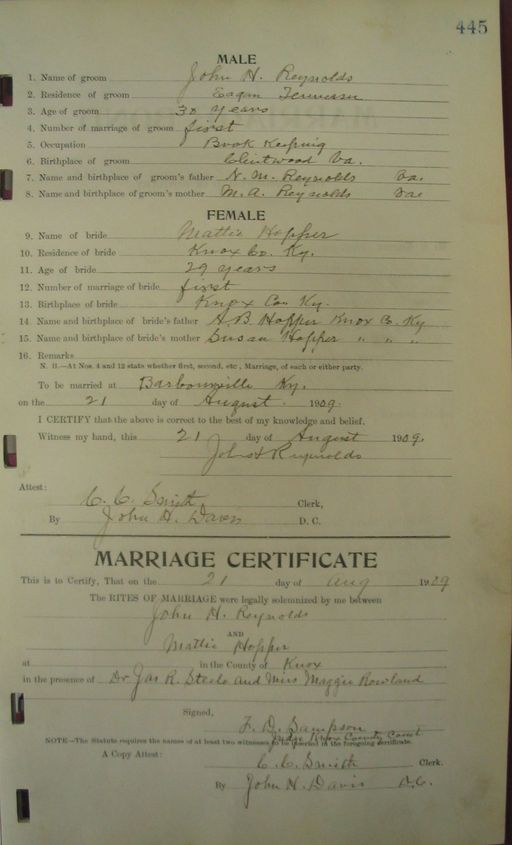 445
MALE
1. Name of groom John H. Reynolds
2. Residence of groom Tennessee
3. Age of groom 30 years
4. Number of marriage of groom first
5. Occupation Book Keeping
6. Birthplace of groom Clintwood Va.
7. Name and birthplace of groom's father N. M. Reynolds Va.
8. Name and birthplace of groom's mother M. A. Reynolds Va.
FEMALE
9. Name of bride Mattie Hopper
10. Residence of bride Knox Co. Ky.
11. Age of bride 29 years
12. Number of marriage of bride first
13. Birthplace of bride Knox Co Ky.
14. Name and birthplace of bride's father A. B. Hopper Knox Co. Ky
15. Name and birthplace of bride's mother Susan Hopper " " "
16. Remarks
N. B.—At Nos. 4 and 12 state whether first, second, etc., Marriage, of each or either party.
To be married at Barbourville Ky.
on the 21 day of August 1909.
I CERTIFY that the above is correct to the best of my knowledge and belief.
Witness my hand, this 21 day of August 1909.
John H Reynolds
Attest:
C. C. Smith Clerk,
By John H. Davis D. C.
MARRIAGE CERTIFICATE
This is to Certify, That on the 21 day of Aug 1909
The RITES OF MARRIAGE were legally solemnized by me between
John H. Reynolds
AND
Mattie Hopper
at in the County of Knox
in the presence of Dr. Jas R. Steele and Miss Maggie Rowland
Signed,
F. D. Sampson
Judge Knox County Court
NOTE—The Statute requires the names of at least two witnesses to be inserted in the foregoing certificate.
A Copy Attest:
C. C. Smith Clerk.
By John H. Davis D.C.